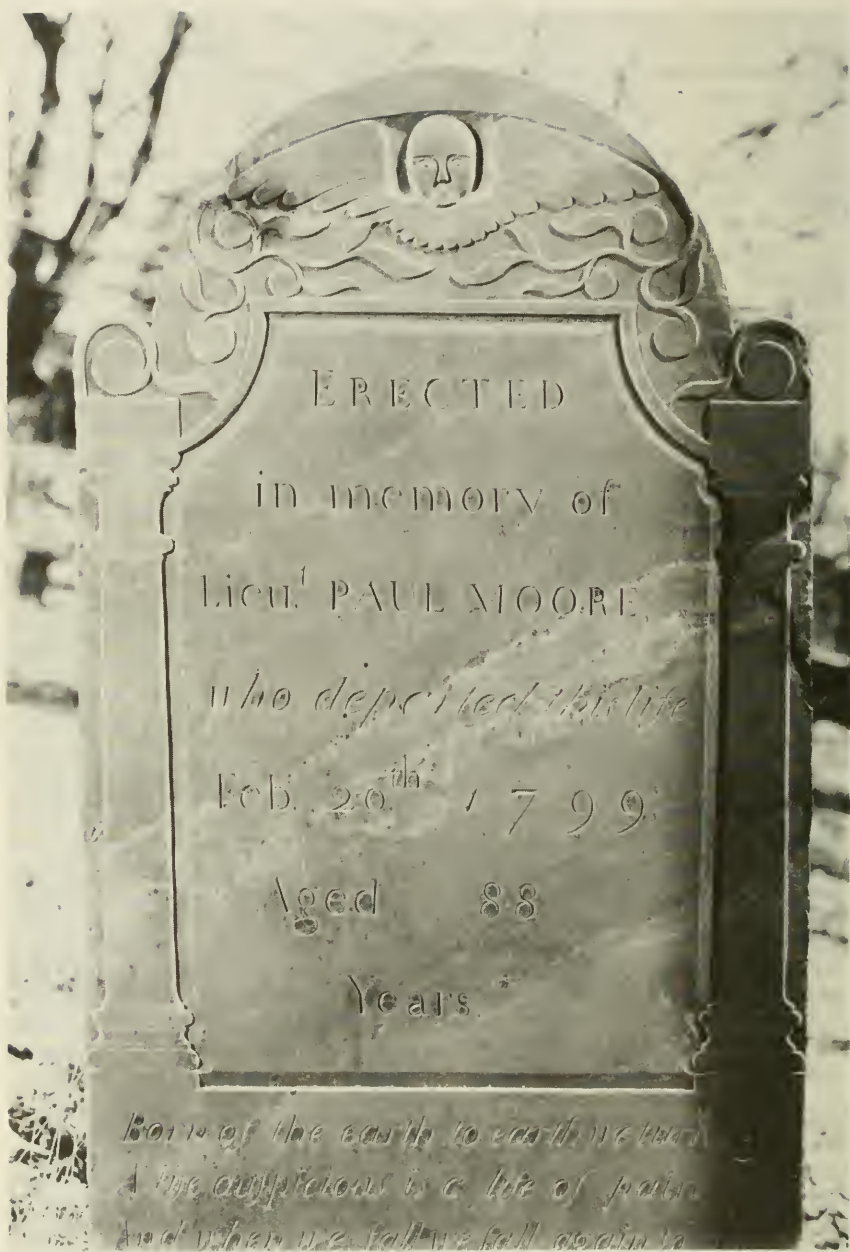 ERECTED
in memory of
Lieu.t PAUL MOORE
who departed this life
Feb. 20th 1799.
Aged 88
Years.
Born of the earth to earth
A life auspicious is a life of pain
And when we fall we fall again